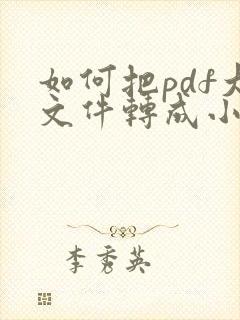 如何把pdf大
文件轉成小
李秀英